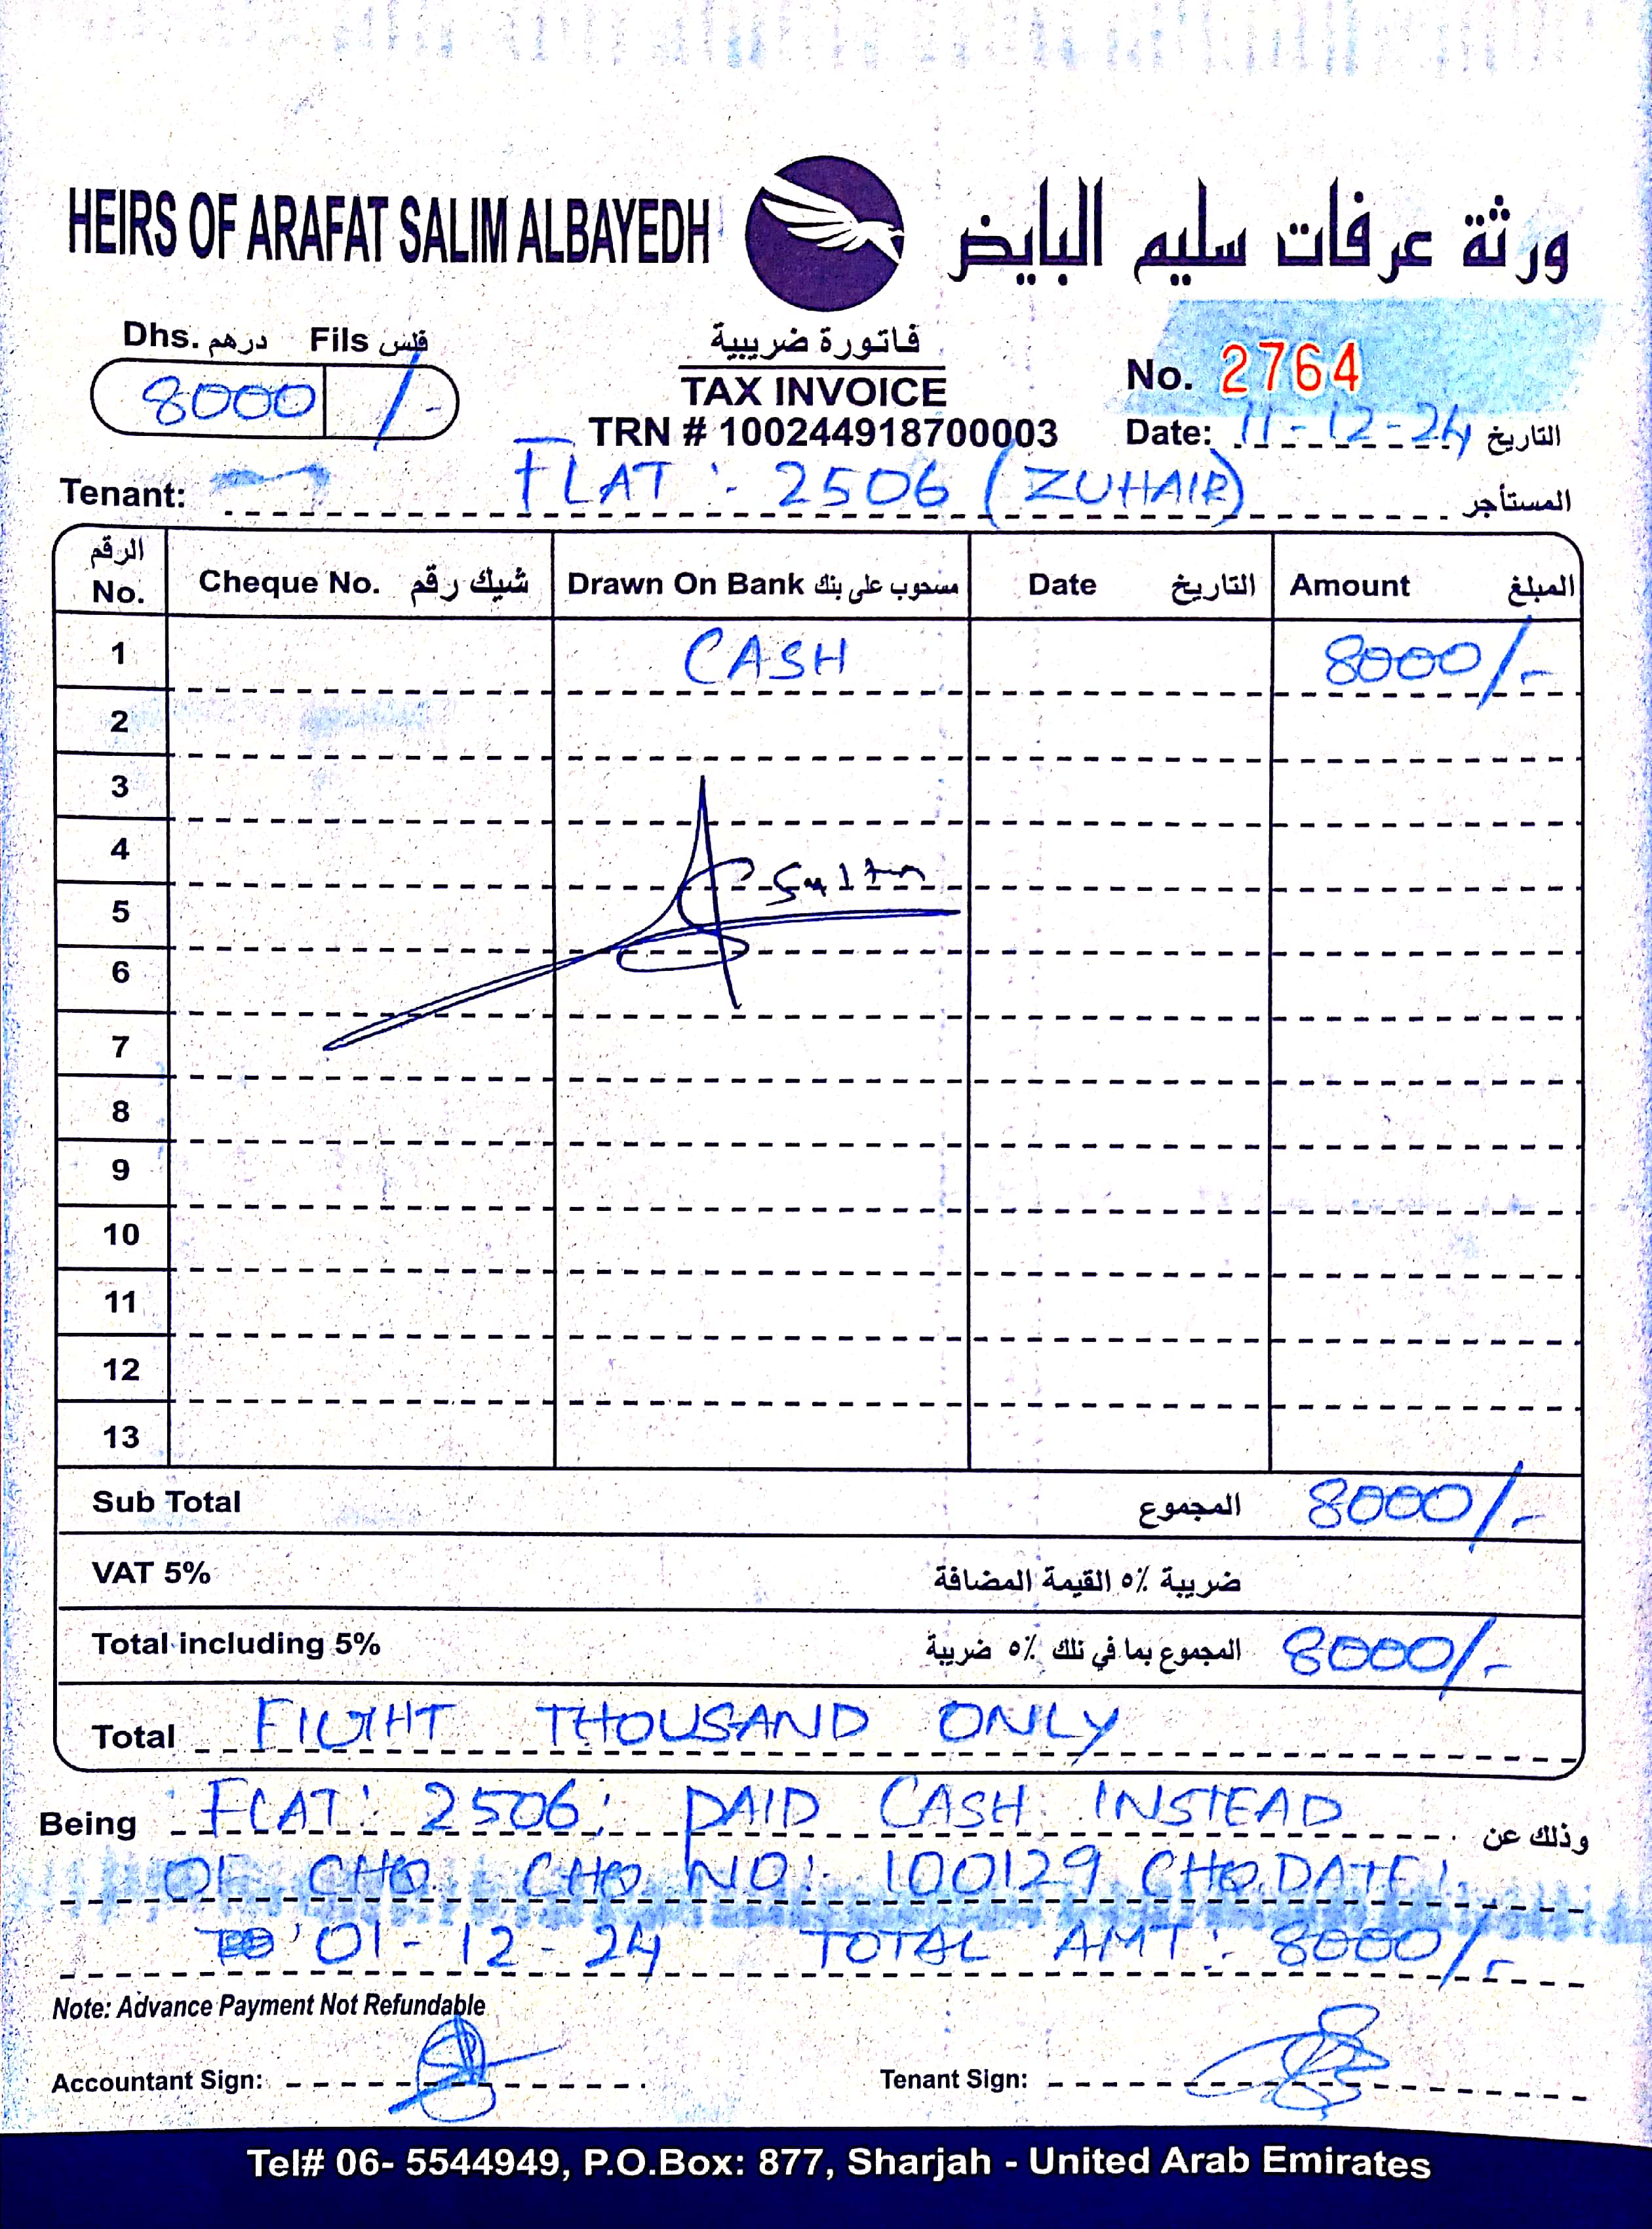 HEIRS OF ARAFAT SALIM ALBAYEDH ورثة عرفات سليم البايض
Dhs. درهم Fils فلس
8000 /-
فاتورة ضريبية
TAX INVOICE
TRN # 100244918700003
No. 2764
Date: 11-12-24 التاريخ
Tenant: FLAT : 2506 (ZUHAIR) المستأجر
الرقم No. Cheque No. شيك رقم Drawn On Bank مسحوب على بنك Date التاريخ Amount المبلغ
1 CASH 8000/-
2
3
4
Sultan
5
6
7
8
9
10
11
12
13
Sub Total المجموع 8000/-
VAT 5% ضريبة ٥٪ القيمة المضافة
Total including 5% المجموع بما في ذلك ٥٪ ضريبة 8000/-
Total EIGHT THOUSAND ONLY
Being FLAT: 2506; PAID CASH INSTEAD وذلك عن
OF CHQ. CHQ NO: 100129 CHQ.DATE:
01-12-24 TOTAL AMT: 8000/-
Note: Advance Payment Not Refundable
Accountant Sign: Tenant Sign:
Tel# 06- 5544949, P.O.Box: 877, Sharjah - United Arab Emirates